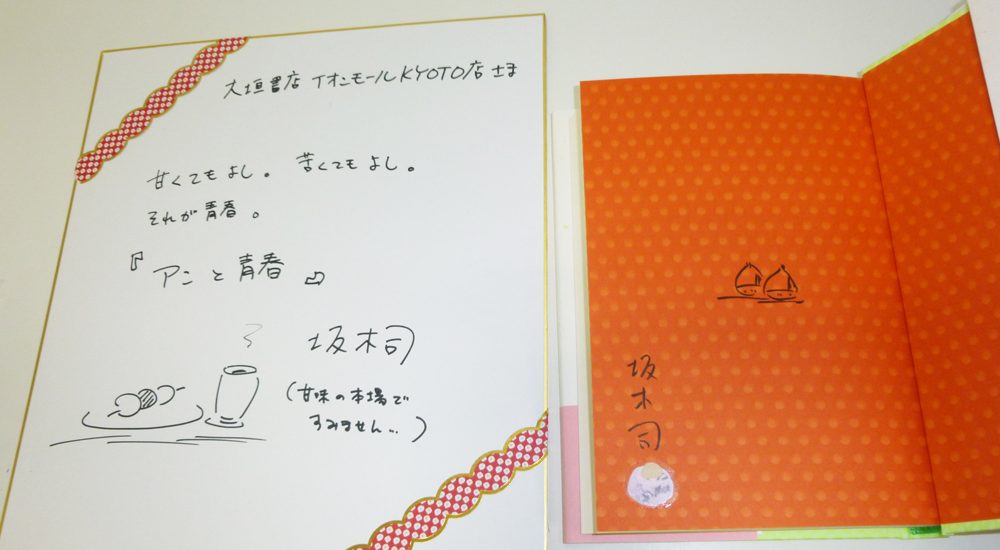 大垣書店 イオンモールKYOTO店 さま
甘くてもよし。 苦くてもよし。
それが青春。
『アンと青春』
坂木司
(甘味の本場で
すみません…)
坂木司